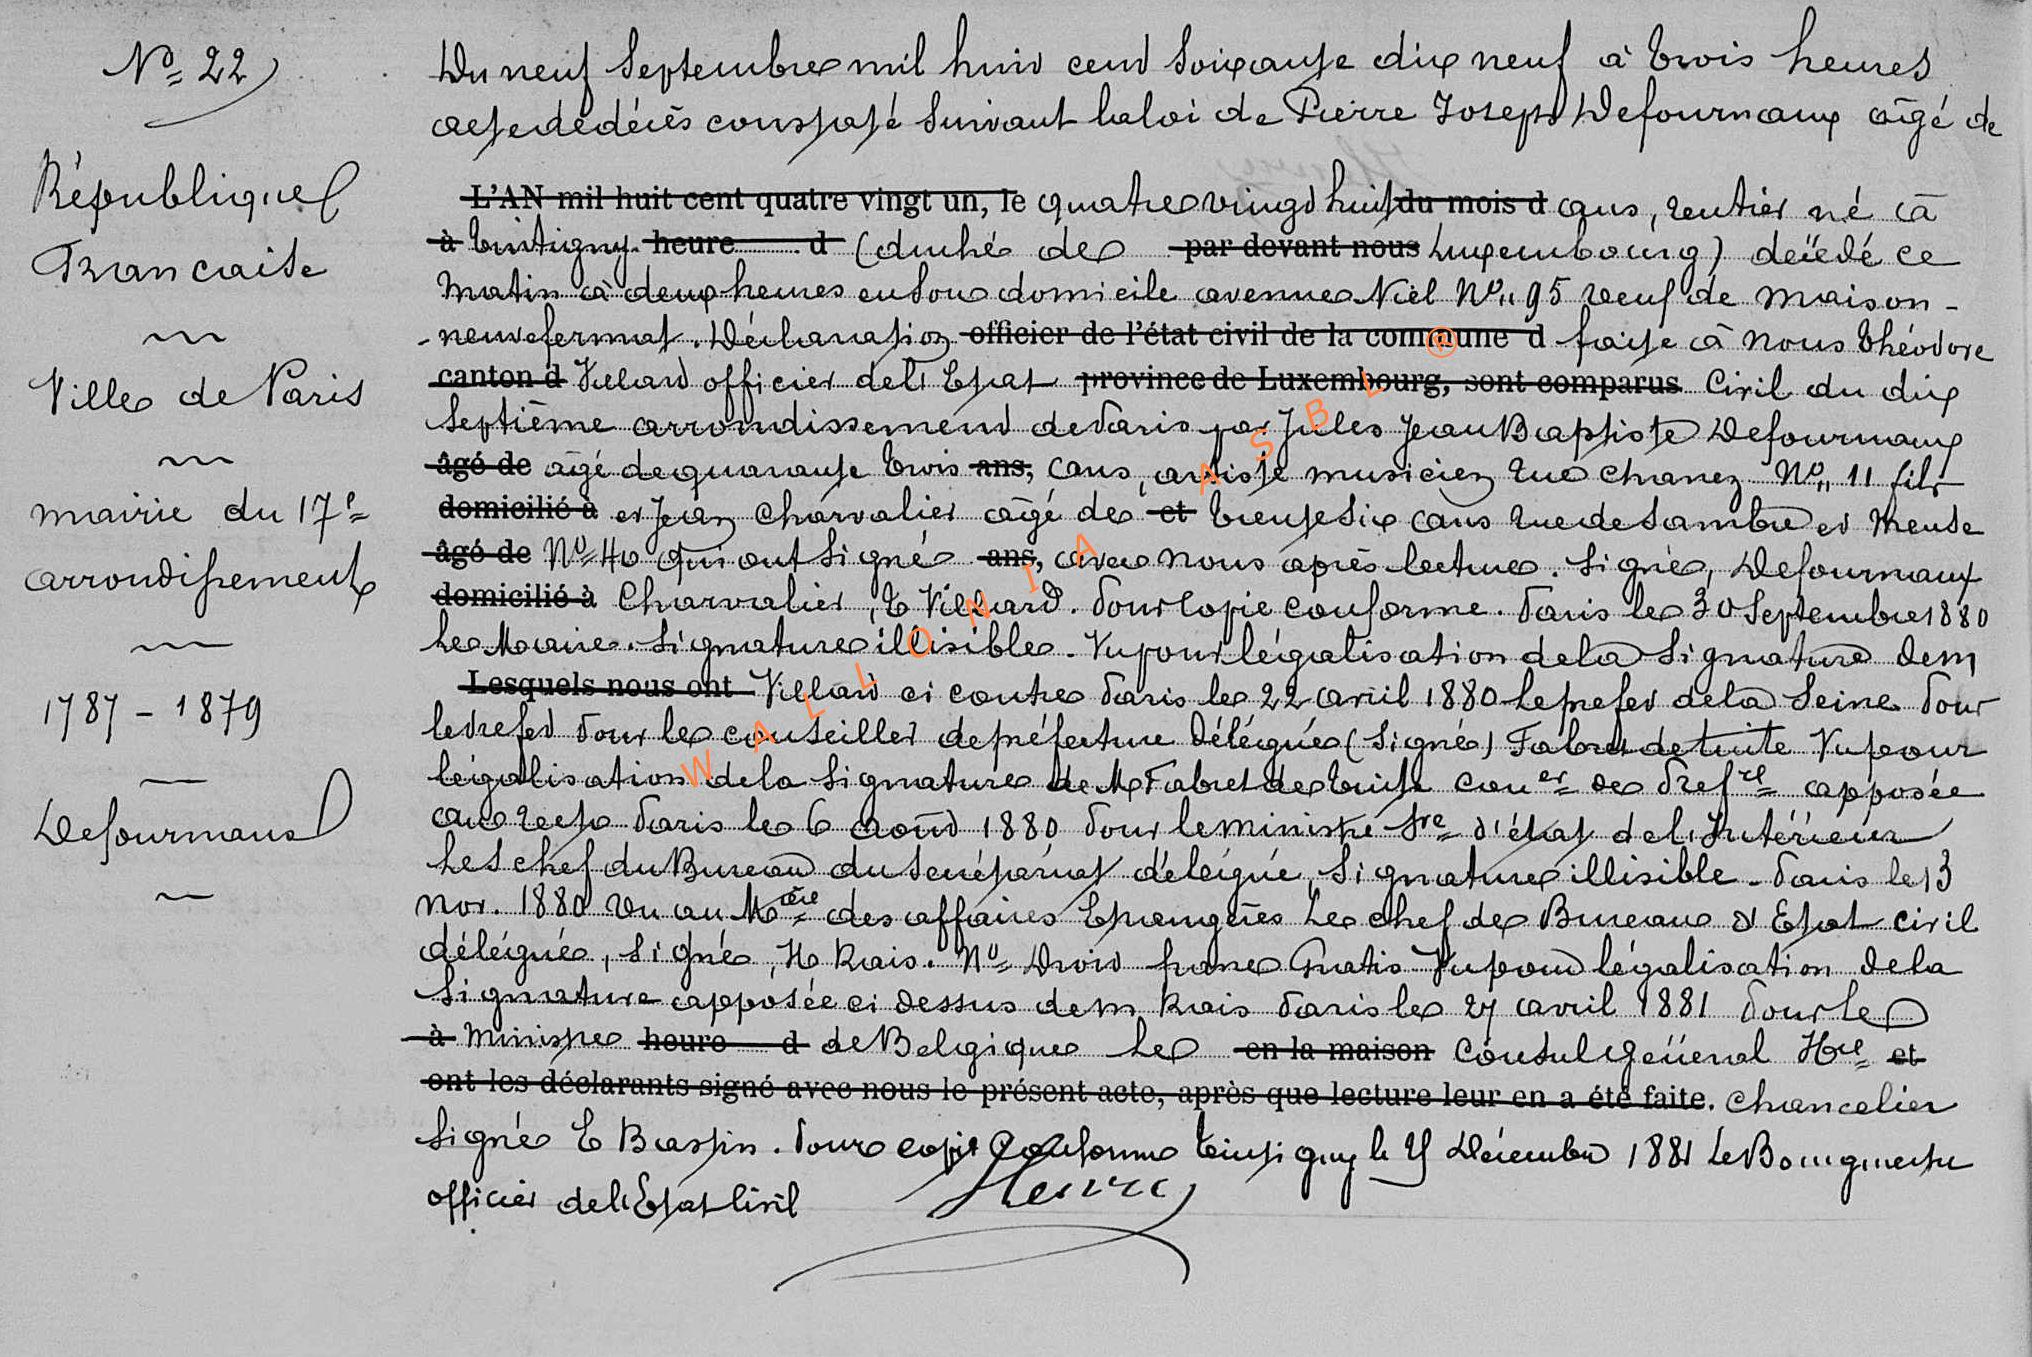 Nº 22
République
Francaise
Ville de Paris
mairie du 17e
arrondissement
1787 - 1879
Defournaux
Du neuf Septembre mil huit cent soixante dix neuf à trois heures
acte de décès constaté suivant la loi de Pierre Joseph Defournaux agé de
L'AN mil huit cent quatre vingt un, le quatre vingt huit du mois d ans, rentier né à
à Tintigny heure d (duché de par devant nous Luxembourg) décédé ce
matin à deux heures en son domicile avenue Niel Nº 95 veuf de maison-
-neuve fermat. Déclaration officier de l'état civil de la commune d faite à nous Théodore
canton d Villard officier de l'Etat province de Luxembourg, sont comparus Civil du dix
septième arrondissement de Paris par Jules Jean Baptiste Defournaux
âgé de agé de quarante trois ans, ans, artiste musicien rue Chanez Nº 11 fils
domicilié à et Jean Charvalier agé de et trente six ans rue de Sambre et Meuse
âgé de Nº 40 qui ont signé ans, avec nous après lecture. Signé, Defournaux
domicilié à Charvalier, T Villard. Pour copie conforme. Paris le 30 Septembre 1880
Le Maire. Signature illisible. Vu pour légalisation de la signature de m
Lesquels nous ont Villard ci contre Paris le 22 avril 1880 Le prefet de la Seine Pour
le Prefet Pour le conseiller de préfecture Délégué (signé) Fabret de tuite Vu pour
légalisation de la signature de M Fabret de Tuite Coner de Prefre apposée
au recto Paris le 6 août 1880 Pour le ministre Sre d'état de l'Intérieur
Le S chef du Bureau du Secrétariat délégué, Signature illisible. Paris le 13
nov. 1880 Vu au Mère des affaires Etrangères Le chef de Bureau d'Etat civil
délégué, signé, H Rais. Nº Droit franc Gratis Vu pour légalisation de la
signature apposée ci dessus de m Rais Paris le 27 avril 1881 Pour le
à ministre heure d de Belgique Le en la maison Consul Général Hre et
ont les déclarants signé avec nous le présent acte, après que lecture leur en a été faite. Chancelier
signé E Bastin. Pour copie conforme Tintigny le Décembre 1881 Le Bourgmestre
officier de l'Etat Civil Henry
WALLONIA ASBL ®